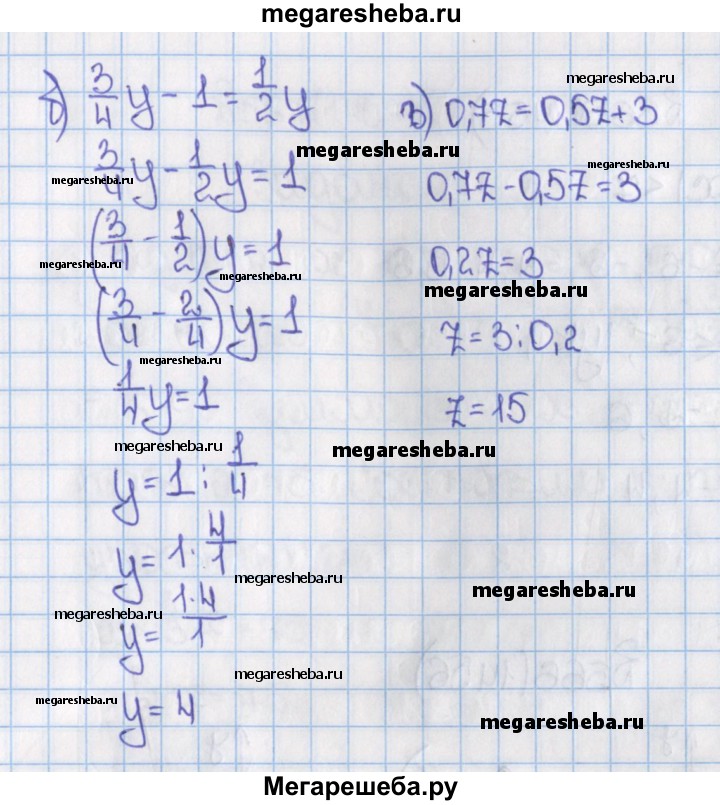 megaresheba.ru
б) 3/4 y - 1 = 1/2 y
megaresheba.ru
3/4 y - 1/2 y = 1
megaresheba.ru
megaresheba.ru
(3/4 - 1/2) y = 1
megaresheba.ru
megaresheba.ru
(3/4 - 2/4) y = 1
megaresheba.ru
1/4 y = 1
megaresheba.ru
y = 1 : 1/4
y = 1 · 4/1
megaresheba.ru
megaresheba.ru
y = 1·4/1
megaresheba.ru
megaresheba.ru
y = 4
megaresheba.ru
в) 0,7z = 0,5z + 3
megaresheba.ru
0,7z - 0,5z = 3
0,2z = 3
megaresheba.ru
z = 3 : 0,2
z = 15
megaresheba.ru
megaresheba.ru
megaresheba.ru
Мегарешеба.ру